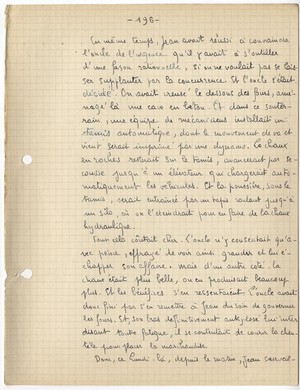 -196-
En même temps, Jean avait réussi à convaincre
l'oncle de l'urgence qu'il y avait à s'outiller
d'une façon rationnelle, si on ne voulait pas se lais-
ser supplanter par la concurrence. Et l'oncle s'était
décidé. On avait creusé le dessous des fours, amé-
nagé là une cave en béton. Et dans ce souter-
rain, une équipe de mécaniciens installait un
tamis automatique, dont le mouvement de va et
vient serait imprimé par une dynamo. La chaux
en roches resterait sur le tamis, avancerait par se-
cousse jusqu'à un élévateur qui chargerait auto-
matiquement les véhicules. Et la poussière, sous le
tamis, serait entraînée par un tapis roulant jusqu'à
un silo, où on l'éteindrait pour en faire de la chaux
hydraulique.
Tout cela coûtait cher. L'oncle n'y consentait qu'a-
vec peine, effrayé de voir ainsi grandir et lui é-
chapper son affaire. Mais d'un autre côté la
chaux était plus belle, on en produisait beaucoup
plus. Et les bénéfices s'en ressentaient. L'oncle avait
donc fini par s'en remettre à Jean du soin de gouverner
les fours. Et, son bras définitivement ankylosé lui inter-
disant toute fatigue, il se contentait de courir la clien-
tèle pour placer la marchandise.
Donc, ce lundi-là, depuis le matin, Jean surveil-